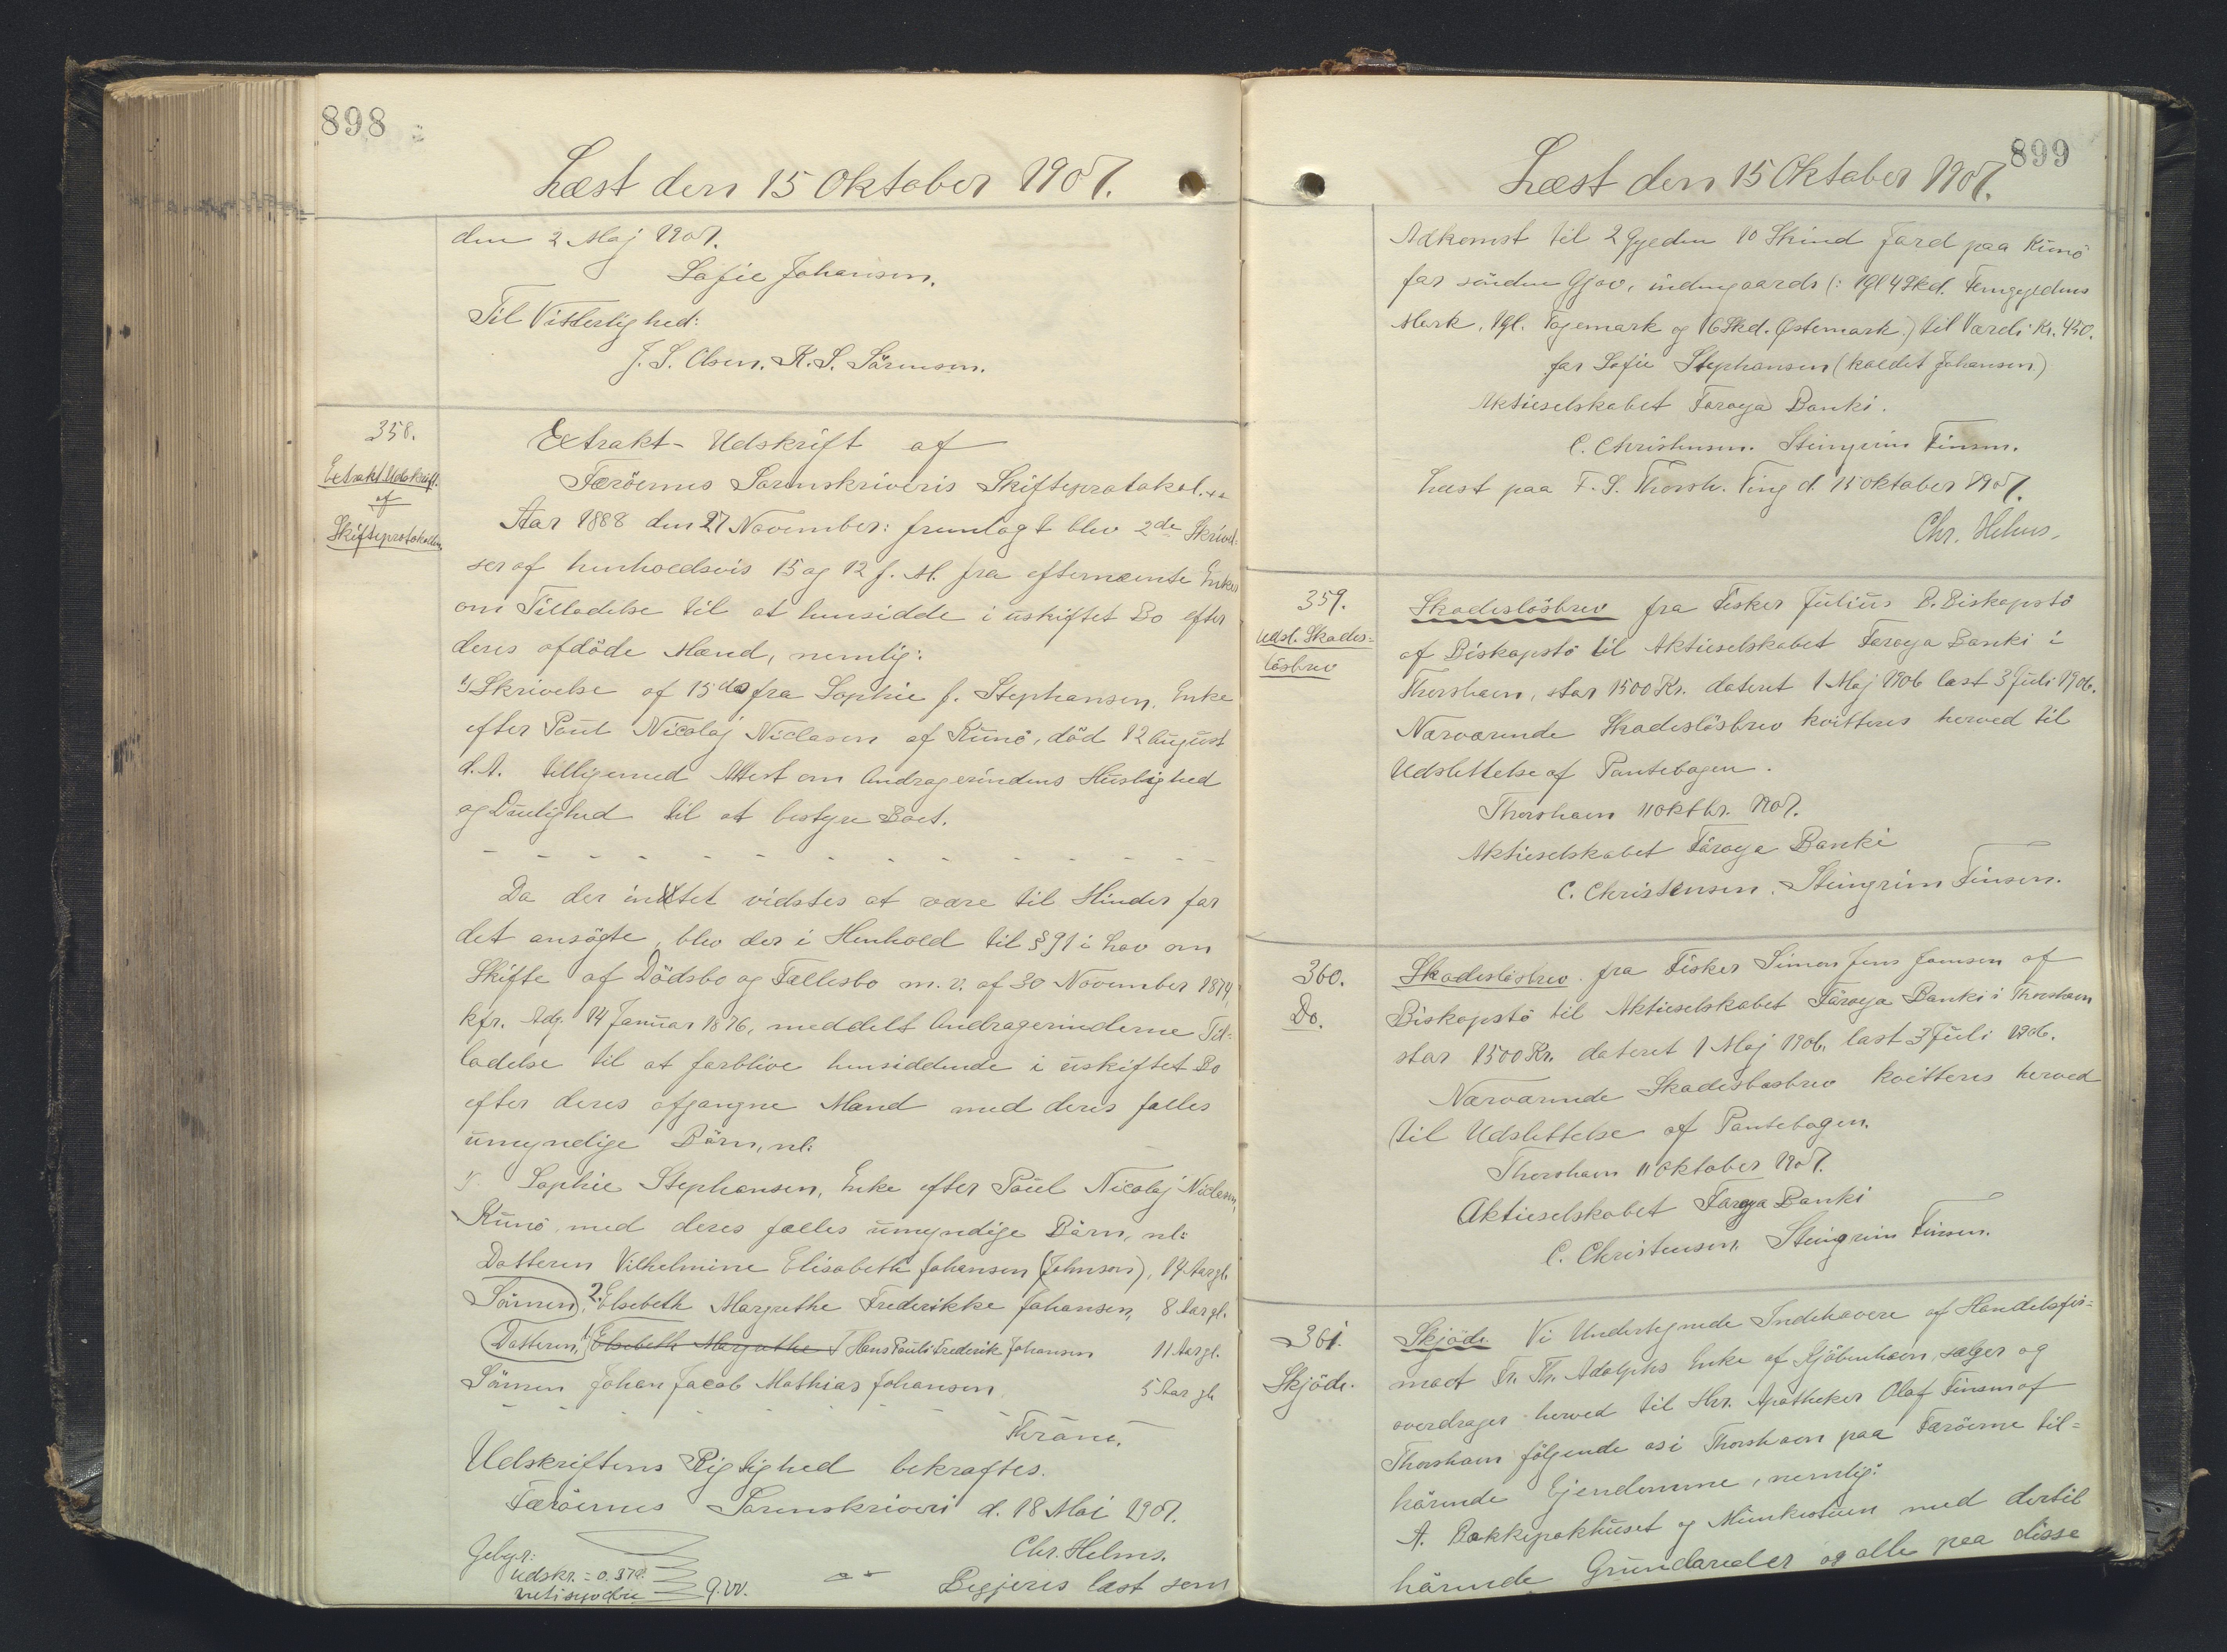 898
Læst den 15 Oktober 1907.
den 2 Maj 1907.
Sofie Johansen.
Til Vitterlighed:
J. S. Olsen. K. S. Sörensen.
358.
Extrakt-Udskrift
af
Skifteprotokollen
Extrakt-Udskrift af
Færöernes Sorenskriveris Skifteprotokol.
Aar 1888 den 27 November: fremlagt blev 2de Skrivel-
ser af henholdsvis 15 og 12 f. M. fra efternævnte Enker
om Tilladelse til at hensidde i uskiftet Bo efter
deres afdöde Mænd, nemlig:
1/ Skrivelse af 15 ds fra Sophie f. Stephansen, Enke
efter Poul Nicolaj Niclasen af Kunö, död 12 August
d. A. tilligemed Attest om Andragerindens Huslighed
og Duelighed til at bestyre Boet.
- - - - - - - - - - - - - -
Da der intet vidstes at være til Hinder for
det ansögte, blev der i Henhold til § 91 i Lov om
Skifte af Dödsbo og Fællesbo m. v. af 30 November 1874,
kfr. Adg. 14 Januar 1876, meddelt Andragerinderne Til-
ladelse til at forblive hensiddende i uskiftet Bo
efter deres afgangne Mænd med deres fælles
umyndige Börn, nl:
1/. Sophie Stephansen, Enke efter Poul Nicolaj Niclasen,
Kunö, med deres fælles umyndige Börn, nl:
Datteren Vilhelmine Elisabeth Johansen (Johnson), 14 Aar gl.
Sönnen, 2. Elsebeth Margrethe Frederikke Johansen, 8 Aar gl.
Datteren, 1. Elsebeth Margrethe f Hans Pauli Frederik Johansen 11 Aar gl.
Sönnen Johan Jacob Mathias Johansen, 5 Aar gl.
- - - - - - - -
Thrane.
Udskriftens Rigtighed bekræftes.
Færöernes Sorenskriveri d. 18 Mai 1907.
Chr. Helms.
Gebyr:
Udskr. =
Begjeres læst som
899
Læst den 15 Oktober 1907.
Adkomst til 2 Gylden 10 Skind Jord paa Kunö
for sönden Gjov, indengaards (: 1 Gl 4 Skd. Femgyldens
Mark, 1 Gl. Togemark og 16 Skd. Östemark.) til Værdi Kr. 450.
for Sofie Stephansen (kaldet Johansen)
Aktieselskabet Føroya Banki.
C. Christensen. Steingrim Finsen.
Læst paa F. S. Thorsh. Ting d. 15 Oktober 1907.
Chr. Helms.
359.
Udsl. Skades-
lösbrev
Skadeslösbrev fra Fisker Julius P. Biskopstö
af Biskopstö til Aktieselskabet Föroya Banki i
Thorshavn, stor 1500 Kr. dateret 1 Maj 1906 læst 3 Juli 1906.
Nærværende Skadeslösbrev kvitteres herved til
Udslettelse af Pantebogen.
Thorshavn 11 Oktbr. 1907.
Aktieselskabet Föroya Banki
C. Christensen. Steingrim Finsen.
360.
Do.
Skadeslösbrev fra Fisker Simon Jens Joensen af
Biskopstö til Aktieselskabet Föroya Banki i Thorshavn
stor 1500 Kr. dateret 1 Maj 1906, læst 3 Juli 1906.
Nærværende Skadeslösbrev kvitteres herved
til Udslettelse af Pantebogen.
Thorshavn 11 Oktober 1907.
Aktieselskabet Föroya Banki
C. Christensen, Steingrim Finsen.
361.
Skjöde.
Skjöde. Vi Undertegnede Indehavere af Handelsfir-
maet Fr. Th. Adolphs Enke af Kjöbenhavn, sælger og
overdrager herved til Hr. Apotheker Olaf Finsen af
Thorshavn fölgende os i Thorshavn paa Færöerne til-
hörende Ejendomme, nemlig:
A. Bakkepakhuset og Munkestuen med dertil
hörende Grundarealer og alle paa disse